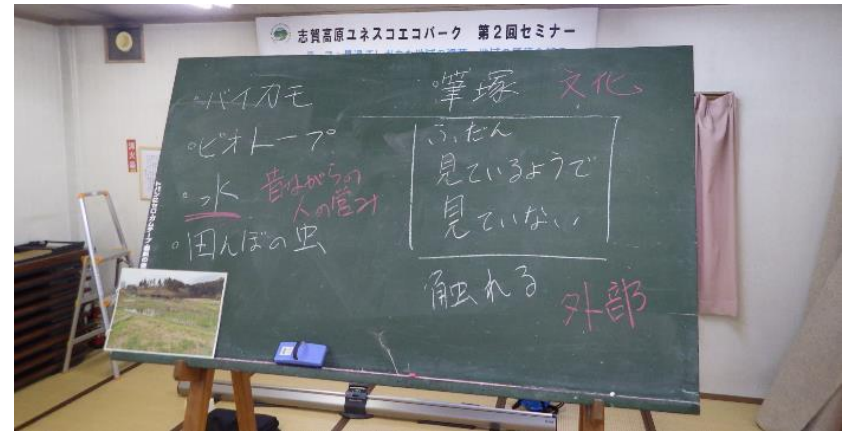 志賀高原ユネスコエコパーク 第2回セミナー
・バイカモ
・ビオトープ
・水 昔ながらの
人の営み
・田んぼの虫
筆塚 文化
ふだん
見ているようで
見ていない
触れる 外部
消火器